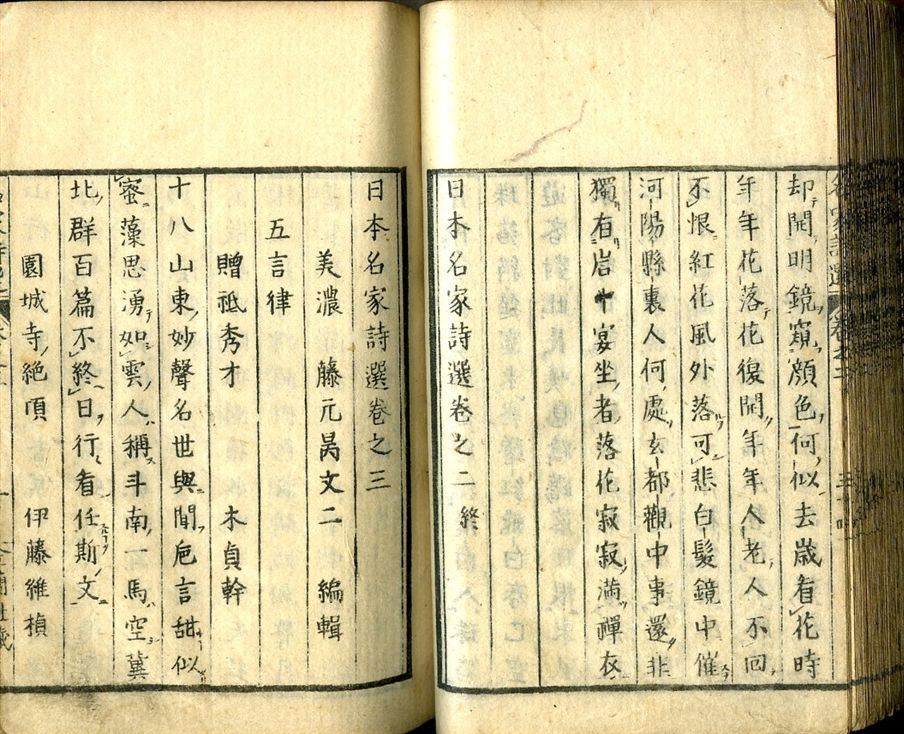 却開明鏡窺顔色何似去歳看花時
年年花落花復開年年人老人不回
不恨紅花風外落可悲白髮鏡中催
河陽縣裏人何處玄都觀中事還非
獨有岩中宴坐者落花寂寂滿禪衣
日本名家詩選卷之二終
日本名家詩選卷之三
美濃 藤元昺文二編輯
五言律
贈祗秀才 木貞幹
十八山東妙聲名世與聞巵言甜似
蜜藻思湧如雲人稱斗南一馬空冀
北群百篇不終日行看任斯文
園城寺絶頂 伊藤維楨